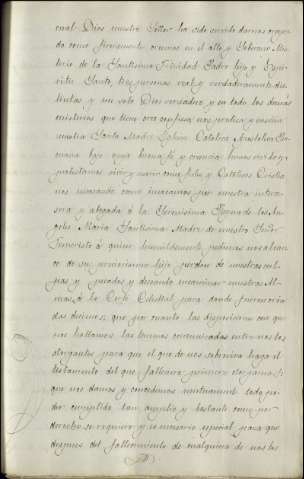 cual Dios nuestro Señor ha sido servido darnos creyen
do como firmemente creemos en el alto y Soberano Mis-
terio de la Santisima Trinidad Padre hijo y Espi-
ritu Santo, tres personas real y verdaderamente dis-
tintas y un solo Dios verdadero y en todos los demas
misterios que tiene cree confiesa nos predica y enseña
nuestra Santa Madre Yglesia Catolica Apostolica Ro-
mana bajo cuya buena fé y creencia hemos vivido y
protestamos vivir y morir como fieles y Catolicos Cristia
nos invocando como invocamos por nuestra interce-
sora y abogada á la Serenisima Reyna de los An-
geles Maria Santisima Madre de nuestro Señor
Jesucristo á quien humildemente pedimos nos alcan-
ce de su hijo perdon de nuestras cul-
pas y pecados y deseando encaminar nuestras Al-
mas á la Corte Celestial para donde fueron cria
das decimos: que por cuanto las disposiciones con que
nos hallamos las tenemos comunicadas entre nos los
otorgantes para que el que de nos sobreviva haga el
testamento del que falleciere primero otorgamos:
que nos damos y concedemos mutuamente todo po-
der cumplido tan amplio y bastante como por
derecho se requiere y es necesario especial para que
despues del fallecimiento de cualquiera de nos los